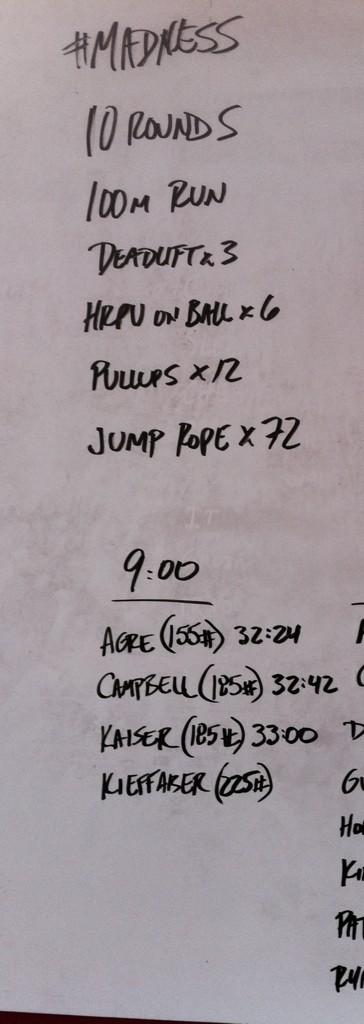 #MADNESS
10 ROUNDS
100M RUN
DEADLIFT x 3
HRPU ON BALL x 6
PULLUPS x 12
JUMP ROPE x 72
9:00
AGRE (155#) 32:24
CAMPBELL (185#) 32:42
KAISER (185#) 33:00
KIEFFABER (225#)